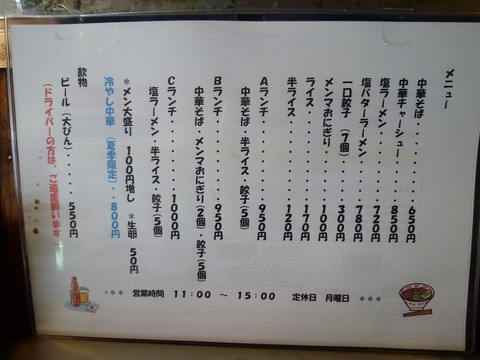 メニュー
中華そば・・・・・・・・650円
中華チャーシュー・・・・850円
塩ラーメン・・・・・・・720円
塩バターラーメン・・・・780円
一口餃子 (7個)・・・・300円
メンマおにぎり・・・・・100円
ライス・・・・・・・・・170円
半ライス・・・・・・・・120円
Aランチ・・・・・・・・950円
中華そば・半ライス・餃子(5個)
Bランチ・・・・・・・・950円
中華そば・メンマおにぎり(2個)・餃子(5個)
Cランチ・・・・・・・1000円
塩ラーメン・半ライス・餃子(5個)
*メン大盛り 100円増し *生卵 50円
冷やし中華 (夏季限定)・・800円
飲物
ビール (大びん)・・・・・550円
(ドライバーの方は、ご遠慮願います)
*** 営業時間 11:00 ～ 15:00 定休日 月曜日 ***